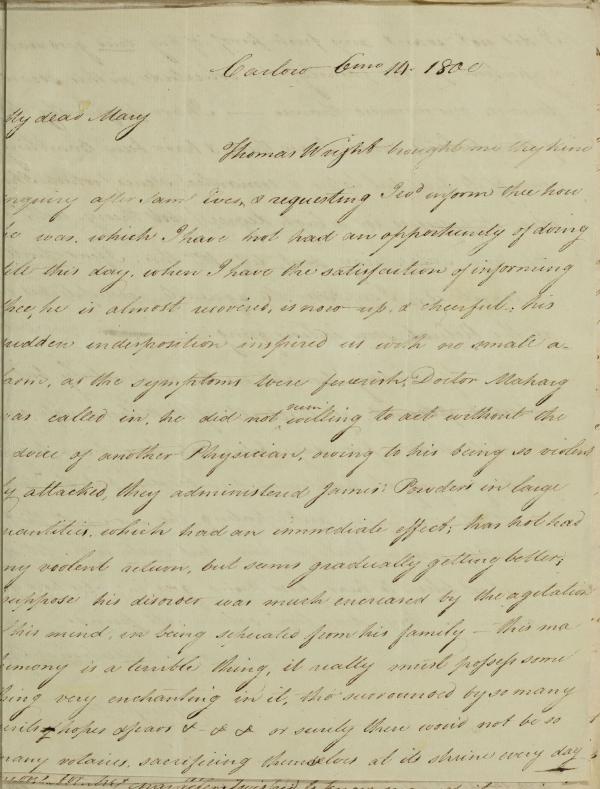 Carlow 6mo 14. 1800
My dear Mary
Thomas Wright brought me thy kind
enquiry after Sam Eves, & requesting I wod inform thee how
he was, which I have not had an opportunity of doing
till this day, when I have the satisfaction of informing
thee, he is almost recovered, is now up, & cheerful; his
sudden indisposition inspired us with no small a-
larm, as the symptoms were feverish. Doctor Maharg
was called in, he did not seem willing to act without the
advice of another Physician, owing to his being so violent
ly attacked, they administerd James's Powders in large
quantities, which had an immediate effect; has not had
any violent return, but seems gradually getting better;
suppose his disorder was much encreased by the agitation
of his mind, in being seperated from his family — this ma
trimony is a terrible thing, it really must possess some
thing very enchanting in it, tho' surrounded by so many
evils, hopes & fears & - & & or surely there would not be so
many votaries, sacrificing themselves at its shrine every day